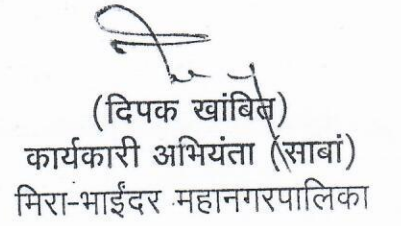 (दिपक खांबित)
कार्यकारी अभियंता (साबां)
मिरा-भाईंदर महानगरपालिका